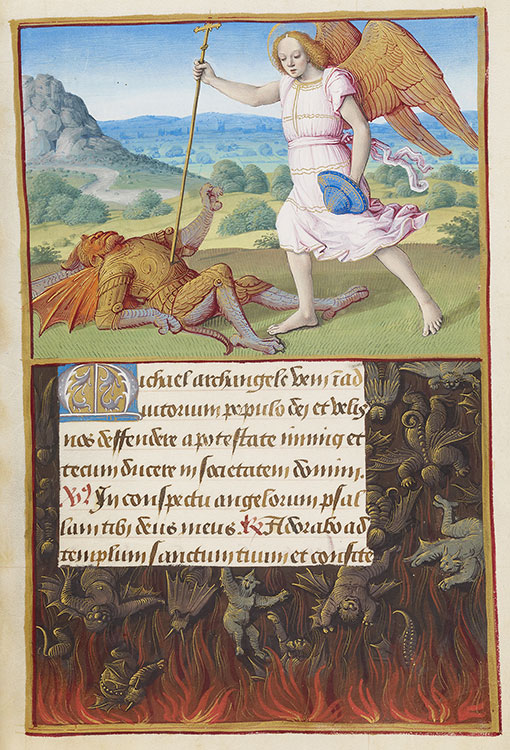 Michael archangele veni īad
iutorium populo dej et velis
nos deffendere a potestate inimicj et
tecum ducere in societatem domini.
℣ In conspectu angelorum psal
lam tibi deus meus ℟ Adorabo ad
templum sanctum tuum et confite